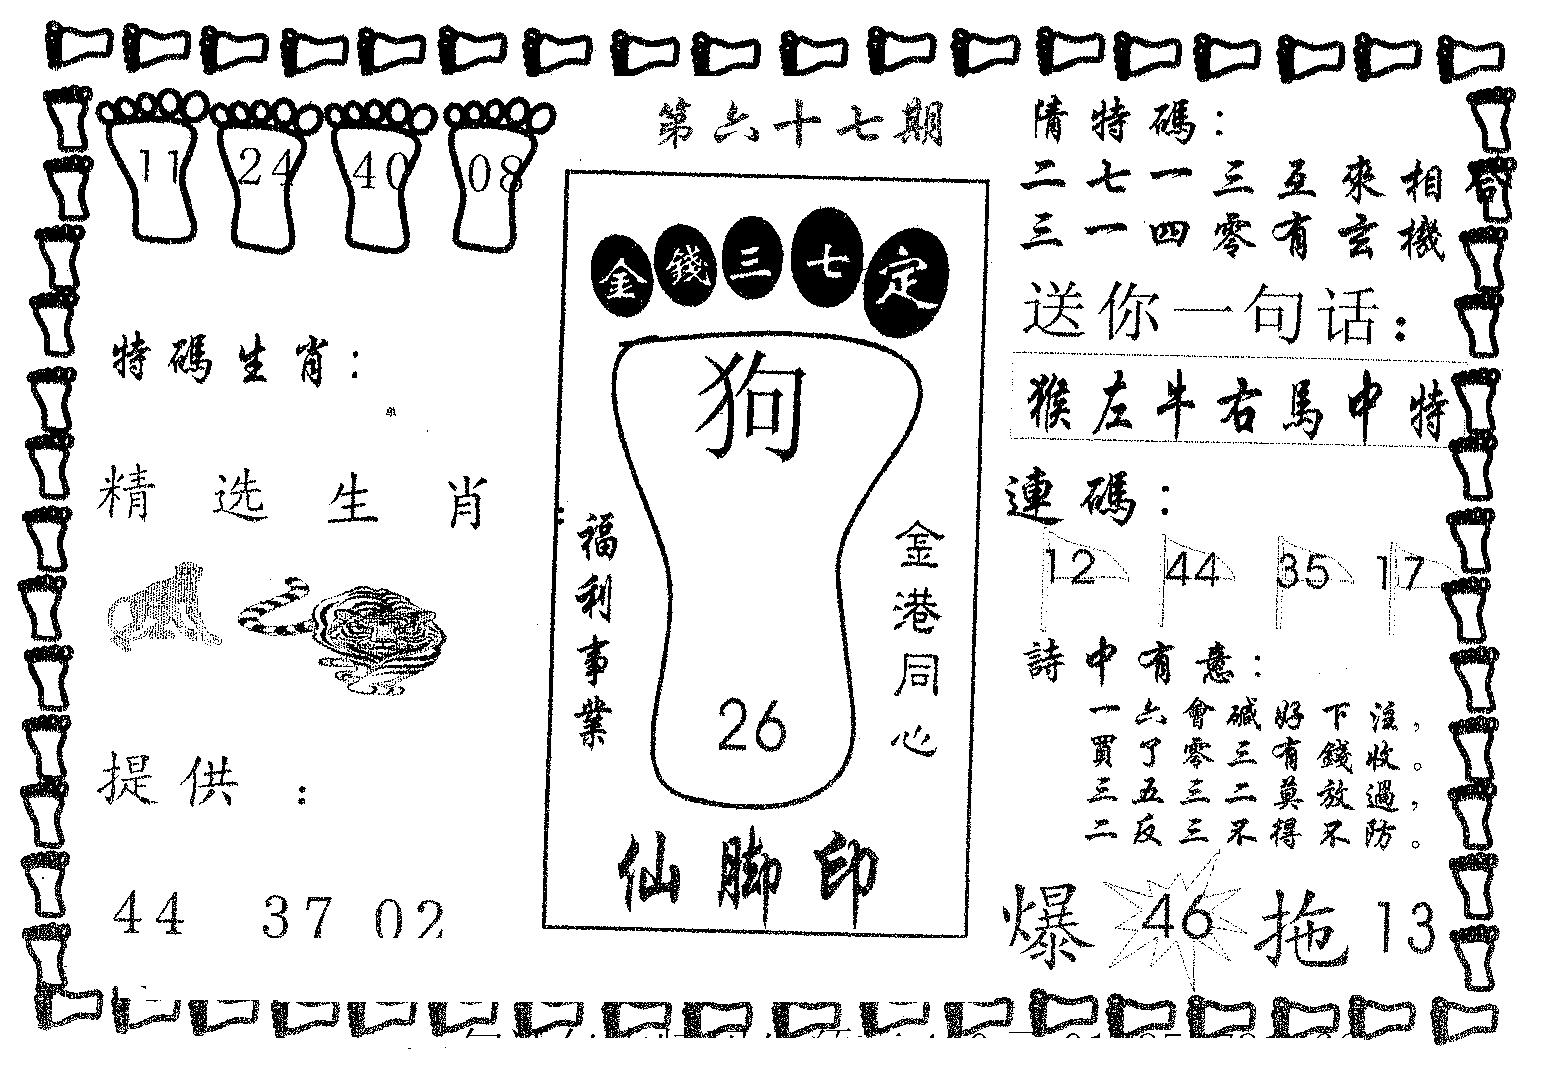 第六十七期
11 24 40 08
特碼生肖：
单
精选生肖：
提供：
44 37 02
金錢三七定
狗
福利事業
金港同心
26
仙脚印
猜特碼：
二七一三互來相
三一四零有玄機
送你一句话：
猴左牛右馬中特
連碼：
12 44 35 17
詩中有意：
一六會碱好下注，
買了零三有錢收。
三五三二莫放過，
二反三不得不防。
爆 46 拖 13